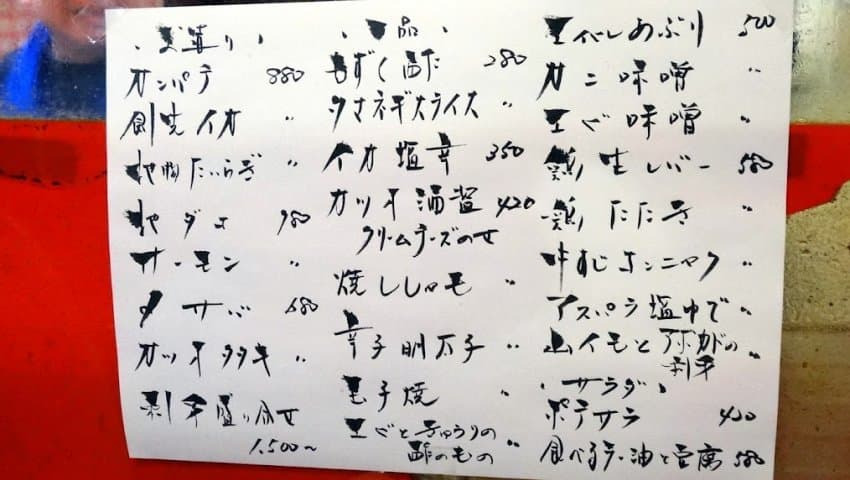 、お造り、
カンパチ 880
剣先イカ 〃
地ダコ 980
サーモン 〃
〆サバ 680
カツオタタキ 〃
刺身盛り合せ
1,500〜
、一品、
もずく酢 280
タマネギスライス 〃
イカ塩辛 350
カツオ酒盗 420
クリームチーズのせ
焼ししゃも 〃
辛子明太子 〃
玉子焼 〃
エビときゅうりの
酢のもの 〃
エイヒレあぶり 500
カニ味噌 〃
エビ味噌 〃
鶏生レバー 580
鶏たたき 〃
牛すじコンニャク 〃
アスパラ塩ゆで 〃
山イモとアボカドの
刺身 〃
、サラダ、
ポテサラ 420
食べるラー油と豆腐 580